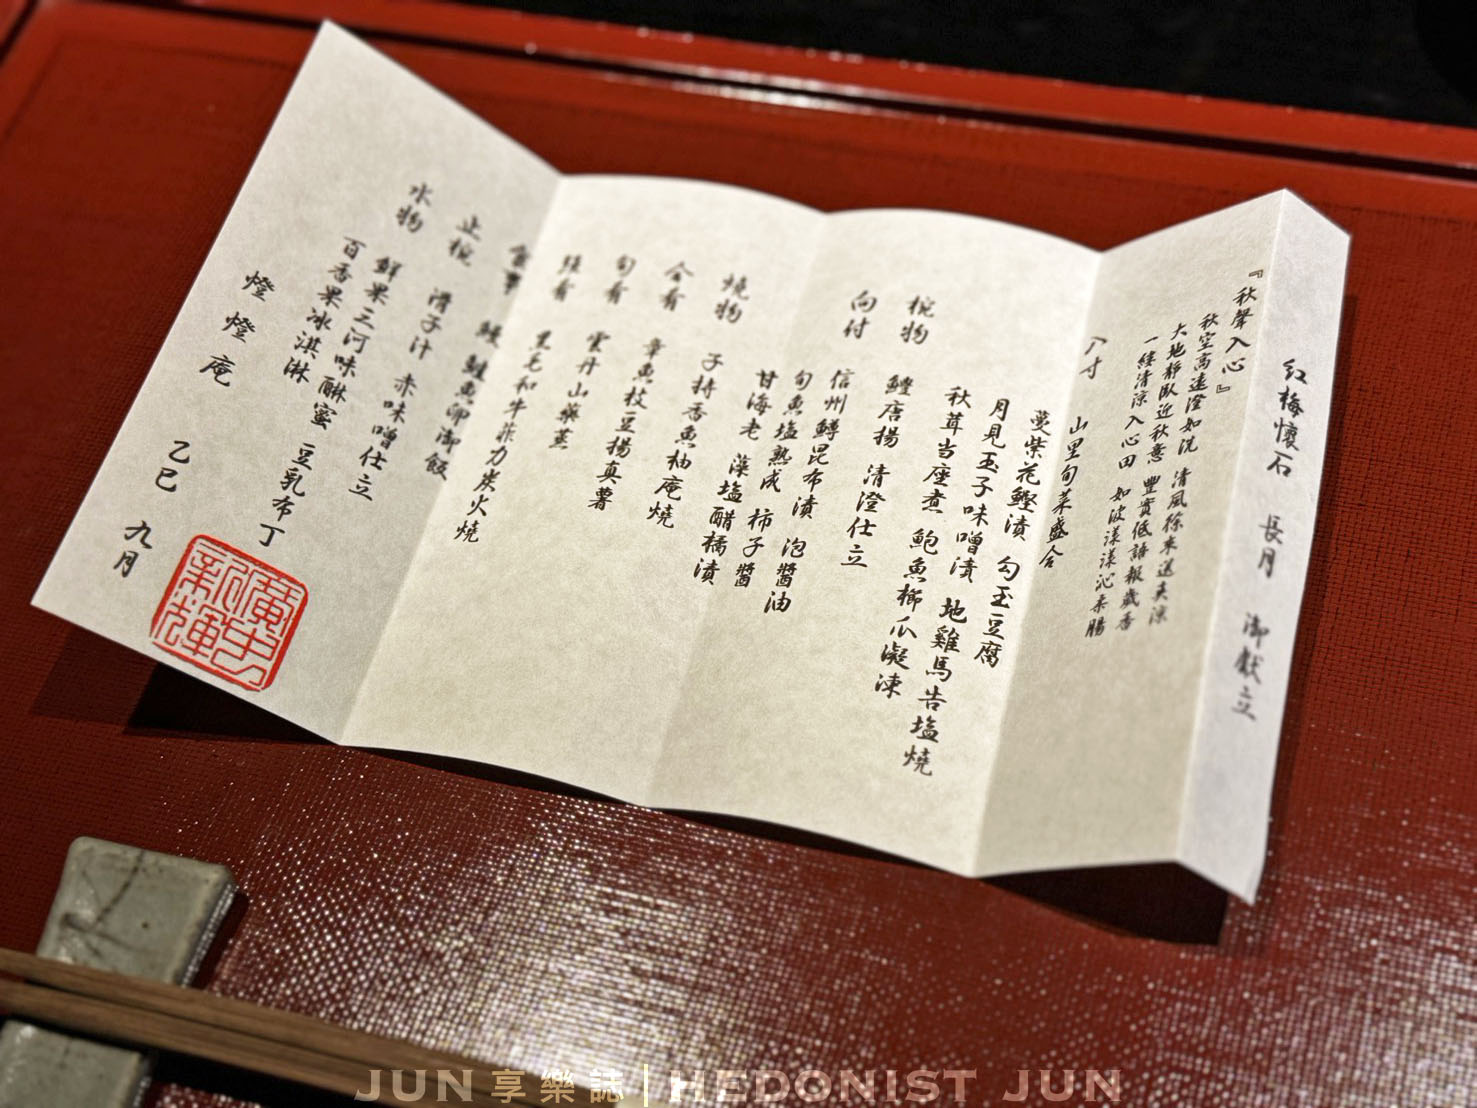 紅梅懷石 長月 御獻立
『秋聲入心』
秋空高遠澄如洗 清風徐來送爽涼
大地靜臥近秋意 豐實低語報歲香
一縷清涼入心田 如波漾漾沁柔腸
八寸 山里旬菜盛合
蔓紫花鰹漬 勾玉豆腐
月見玉子味噌漬 地雞馬告塩燒
秋茸当座煮 鮑魚櫛瓜凝凍
椀物 鱧唐揚 清澄仕立
向付 信州鱒昆布漬 泡醬油
旬魚塩熟成 柿子醬
甘海老 藻塩醋橘漬
燒物 子持香魚柚庵燒
合肴 章魚枝豆揚真薯
旬肴 雲丹山藥蒸
強肴 黑毛和牛菲力炭火燒
食事 鰻 鮭魚卵御飯
止椀 滑子汁 赤味噌仕立
水物 鮮果三河味醂蜜 豆乳布丁
百香果冰淇淋
燈燈庵 乙巳 九月
JUN享樂誌 | HEDONIST JUN